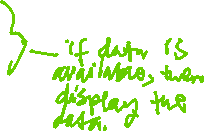 if data is
available, then
display the
data.